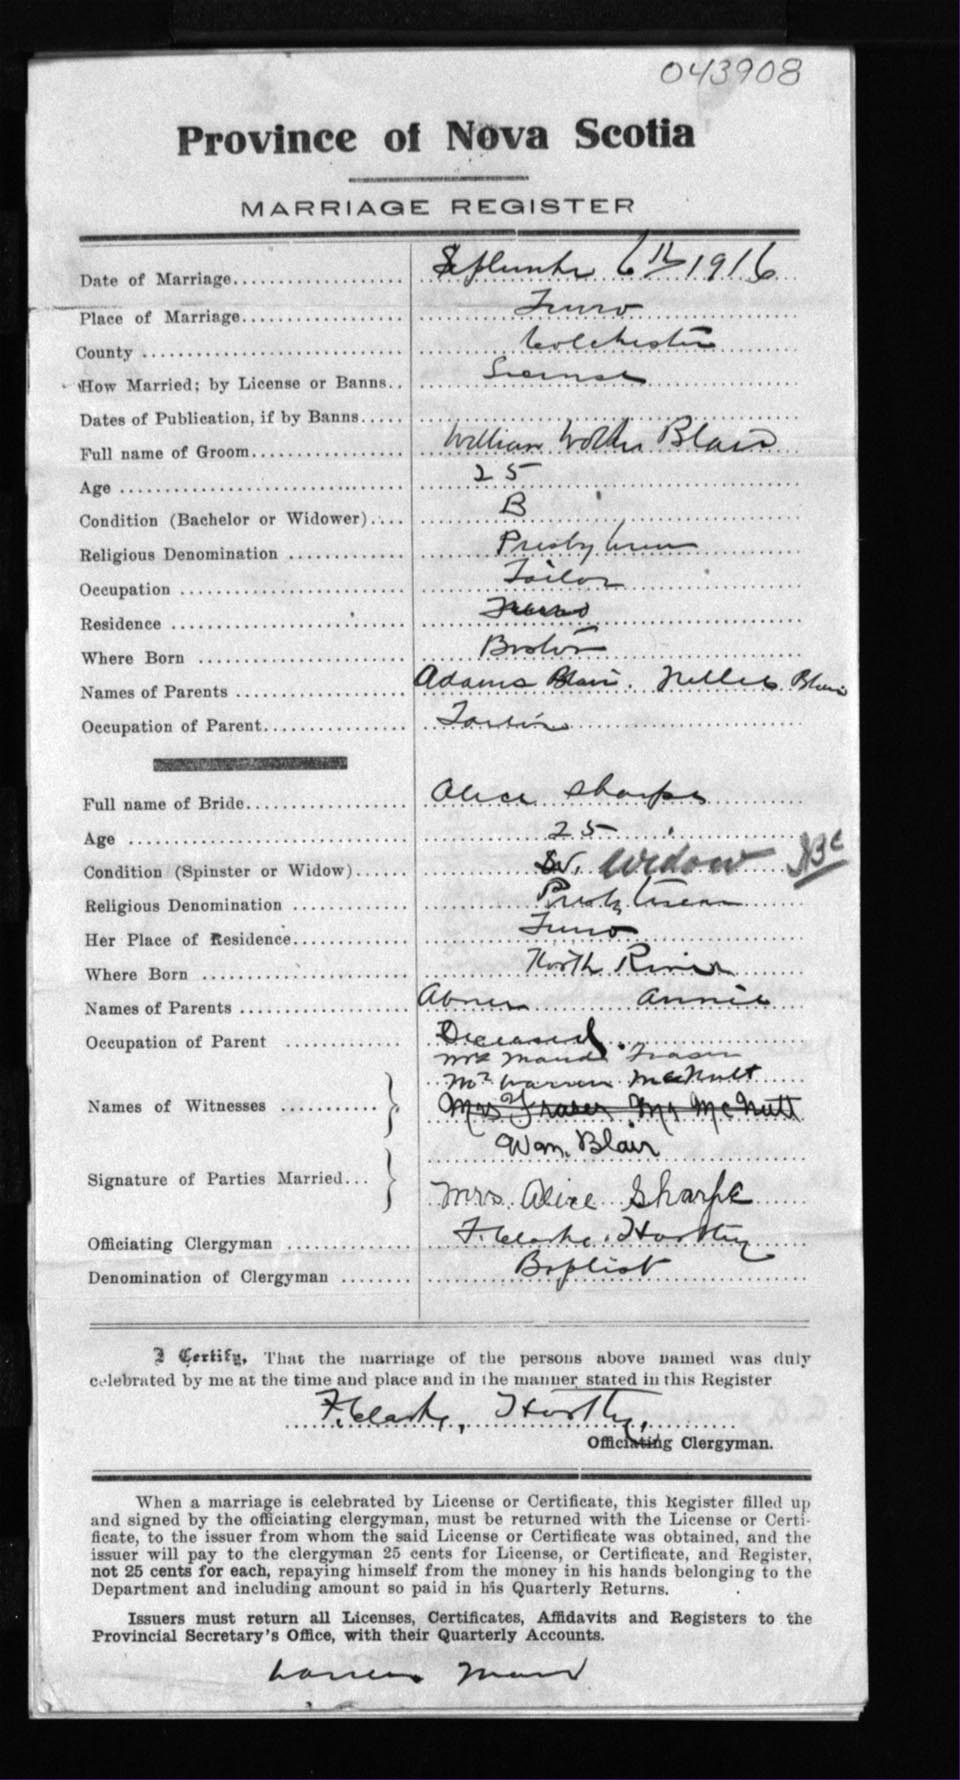 043908
Province of Nova Scotia
MARRIAGE REGISTER
Date of Marriage September 6th 1916
Place of Marriage Truro
County Colchester
How Married; by License or Banns License
Dates of Publication, if by Banns
Full name of Groom William Walter Blair
Age 25
Condition (Bachelor or Widower) B
Religious Denomination Presbyterian
Occupation Tailor
Residence Truro
Where Born Boston
Names of Parents Adams Blair. Nellie Blair
Occupation of Parent
Full name of Bride Alice Sharpe
Age 25
Condition (Spinster or Widow) W. Widow
Religious Denomination Presbyterian
Her Place of Residence Truro
Where Born North River
Names of Parents Abner Annie
Occupation of Parent Deceased.
Mrs Maud Fraser
Mr Warren McNutt
Names of Witnesses Mrs Fraser Mr McNutt
Wm. Blair
Signature of Parties Married
Mrs. Alice Sharpe
Officiating Clergyman F. Clarke
Denomination of Clergyman Baptist
I Certify, That the marriage of the persons above named was duly
celebrated by me at the time and place and in the manner stated in this Register
F. Clarke,
Officiating Clergyman.
When a marriage is celebrated by License or Certificate, this Register filled up
and signed by the officiating clergyman, must be returned with the License or Certi-
ficate, to the issuer from whom the said License or Certificate was obtained, and the
issuer will pay to the clergyman 25 cents for License, or Certificate, and Register,
not 25 cents for each, repaying himself from the money in his hands belonging to the
Department and including amount so paid in his Quarterly Returns.
Issuers must return all Licenses, Certificates, Affidavits and Registers to the
Provincial Secretary's Office, with their Quarterly Accounts.
Warren Maud